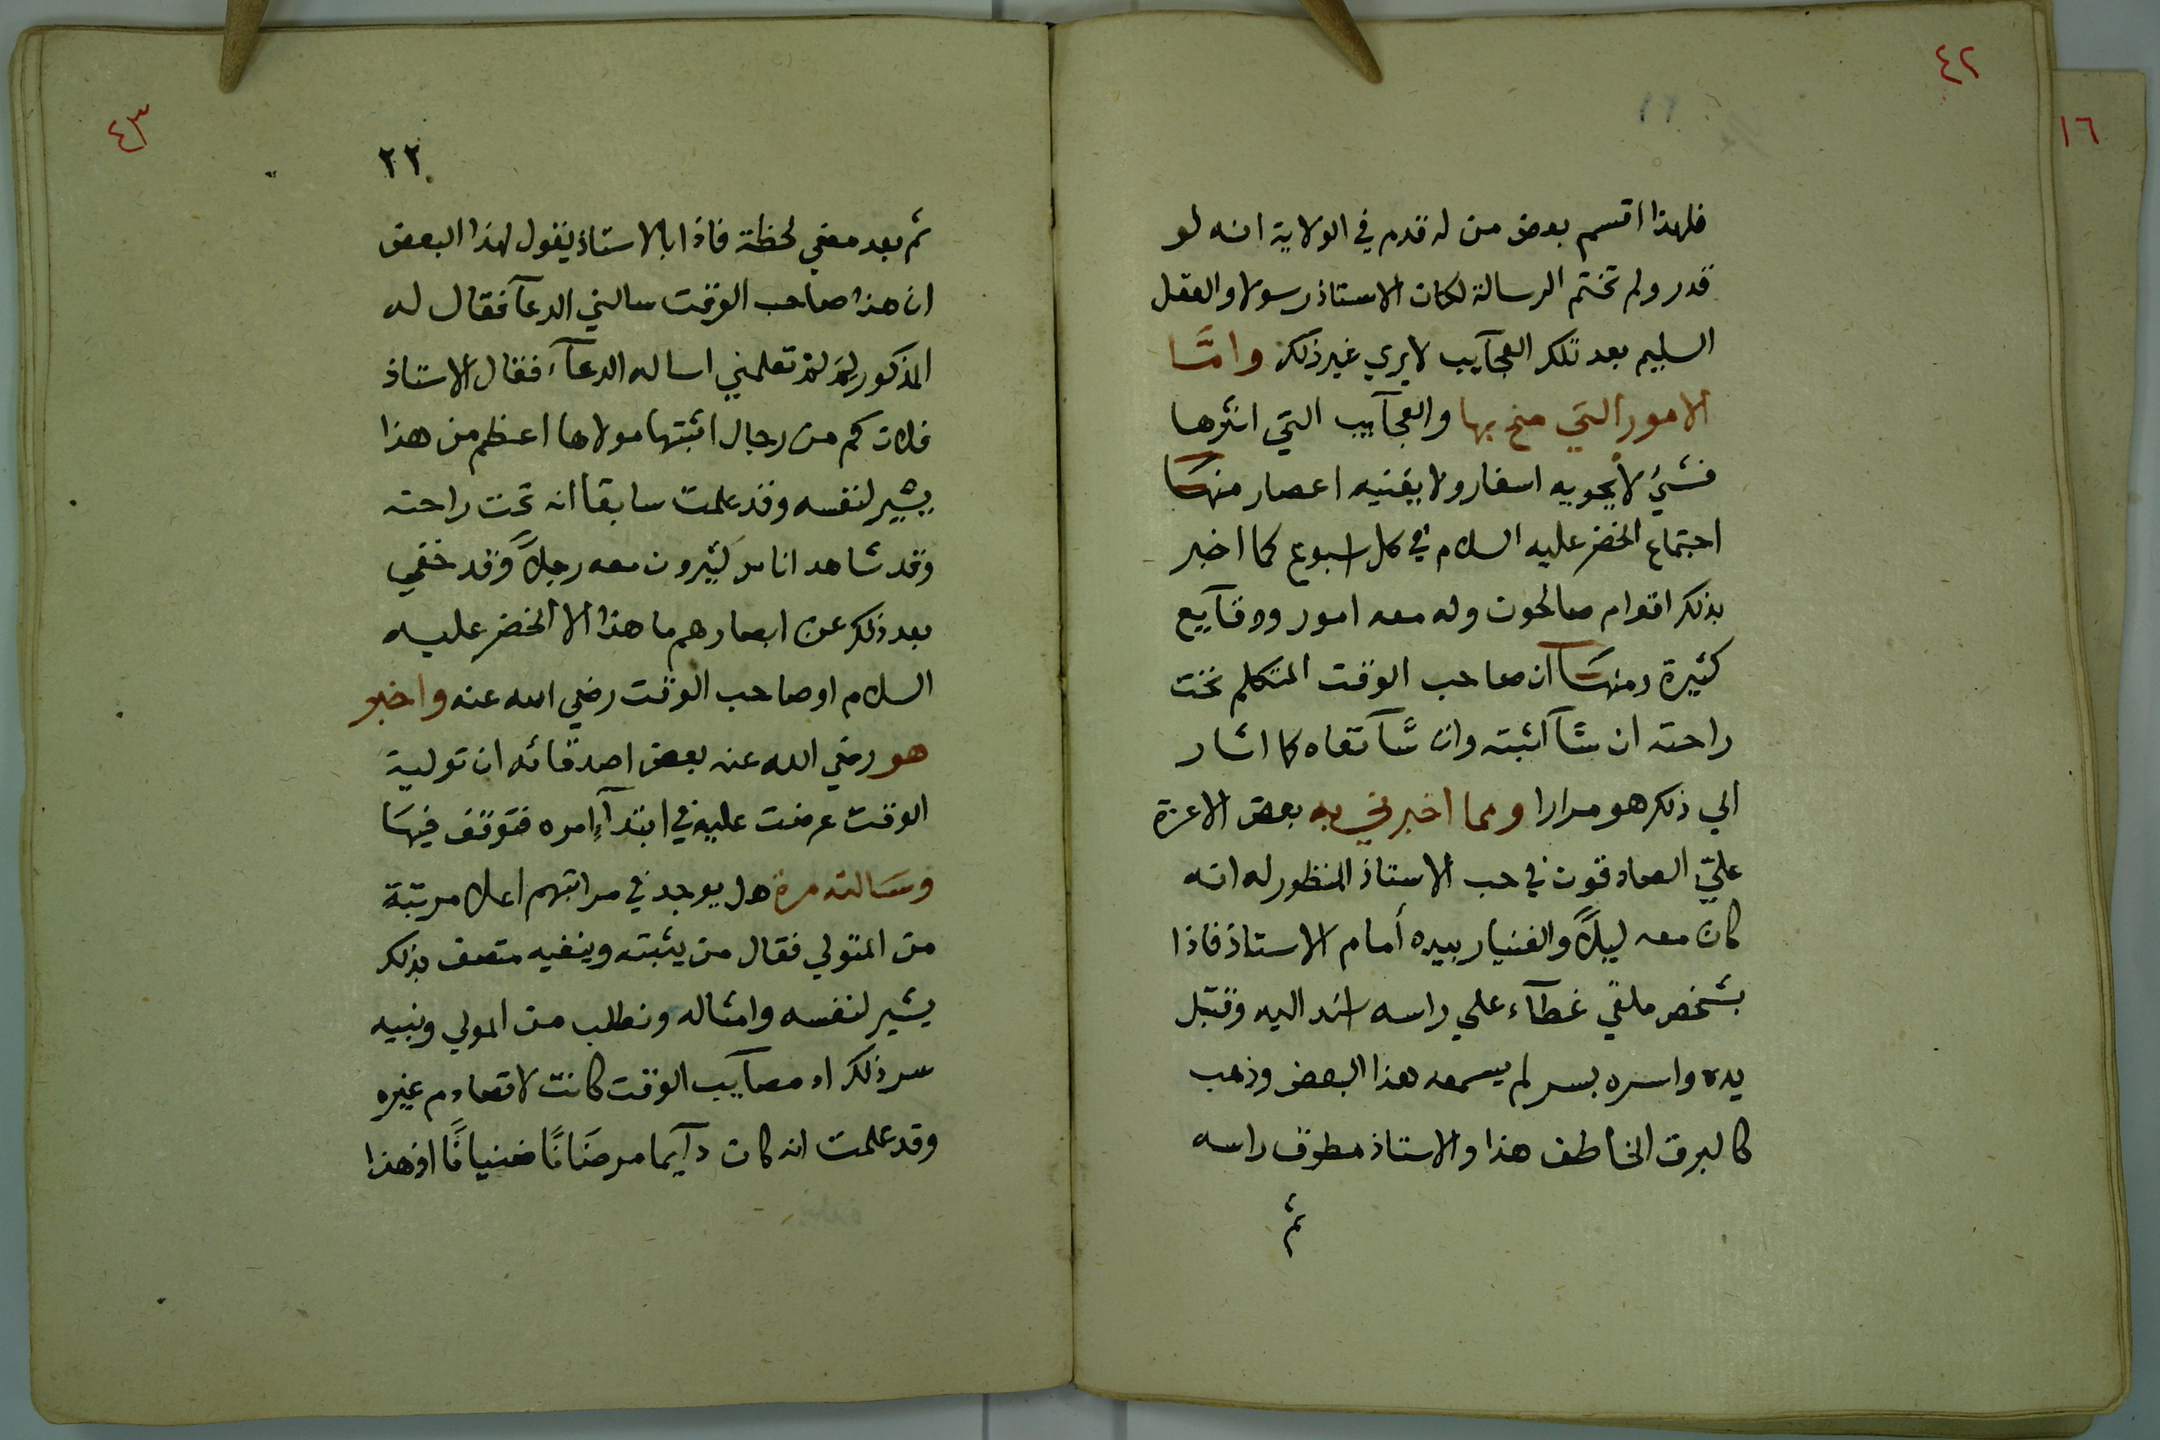 ٤٢
١٦
فلهذا اقسم بعض من له قدم في الولاية انه لو
قدر ولم تختم الرسالة لكان الاستاذ رسولا والعقل
السليم بعد تلك العجآيب لا يري غير ذلك وامّا
الامور التي منح بها والعجآيب التي اثرها
فشيء لا يحويه اسفار ولا يفنيه اعصار منها
اجتماع الخضر عليه السلام في كل اسبوع كما اخبر
بذلك اقوام صالحون وله معه امور ووقآيع
كثيرة ومنها ان صاحب الوقت المتكلم تحت
راحته ان شآ اثبته وان شآ نفاه كما اشار
الي ذلك هو مرارا ومما اخبرني به بعض الاعزة
عليّ الصادقون في حب الاستاذ المنظور له انه
كان معه ليلاً والفنيار بيده أمام الاستاذ فاذا
بشخص ملقي غطآء علي راسه اسند اليه وقبل
يده واسره بسر لم يسمعه هذا البعض وذهب
كالبرق الخاطف هذا والاستاذ مطرق راسه
ثم
٤٣
٢٢
ثم بعد مضي لحظة فاذا بالاستاذ يقول لهذا البعض
ان هذا صاحب الوقت سالني الدعآ فقال له
المذكور لِمَ لَمْ تعلمني اساله الدعآء فقال الاستاذ
فلان كم من رجال اثبتها مولاها اعظم من هذا
يشير لنفسه وقد علمت سابقا انه تحت راحته
وقد شاهد اناس كثيرون معه رجلاً وقد خفي
بعد ذلك عن ابصارهم ما هذا الا الخضر عليه
السلام او صاحب الوقت رضي الله عنه واخبر
هو رضي الله عنه بعض اصدقائه ان تولية
الوقت عرضت عليه في ابتدآء امره فتوقف فيها
وسالته مرة هل يوجد في مراتبهم اعلا مرتبة
من المتولي فقال من يثبته وينفيه متصف بذلك
يشير لنفسه وامثاله ونطلب من المولي ونبيه
سر ذلك اد مصآيب الوقت كانت لا تصادم غيره
وقد علمت انه كان دآيما مرضَانًا ضنيانًا اذ هذا